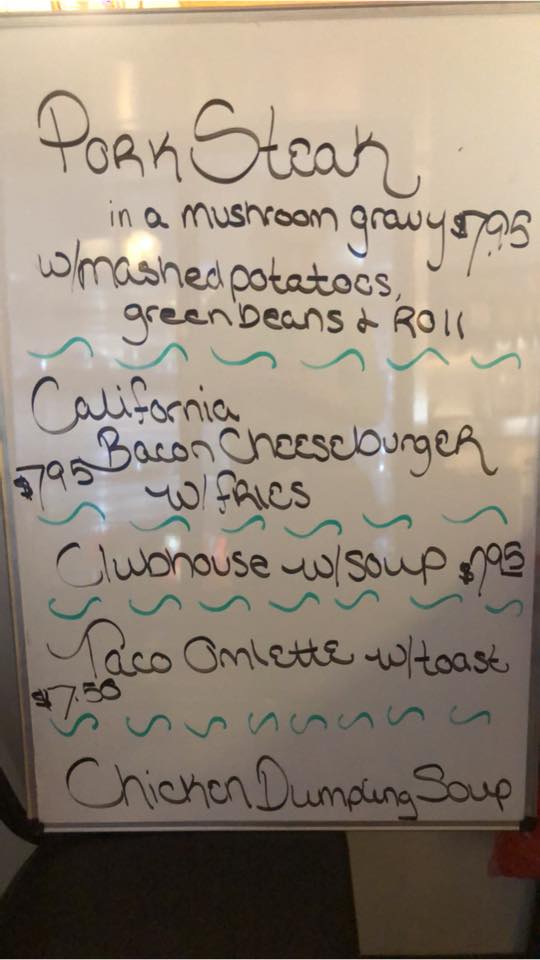 Pork Steak
in a mushroom gravy $7.95
w/mashed potatoes,
green beans & Roll
California
Bacon Cheeseburger
$7.95 w/ fries
Clubhouse w/soup $7.95
Taco Omlette w/toast
$7.50
Chicken Dumpling Soup